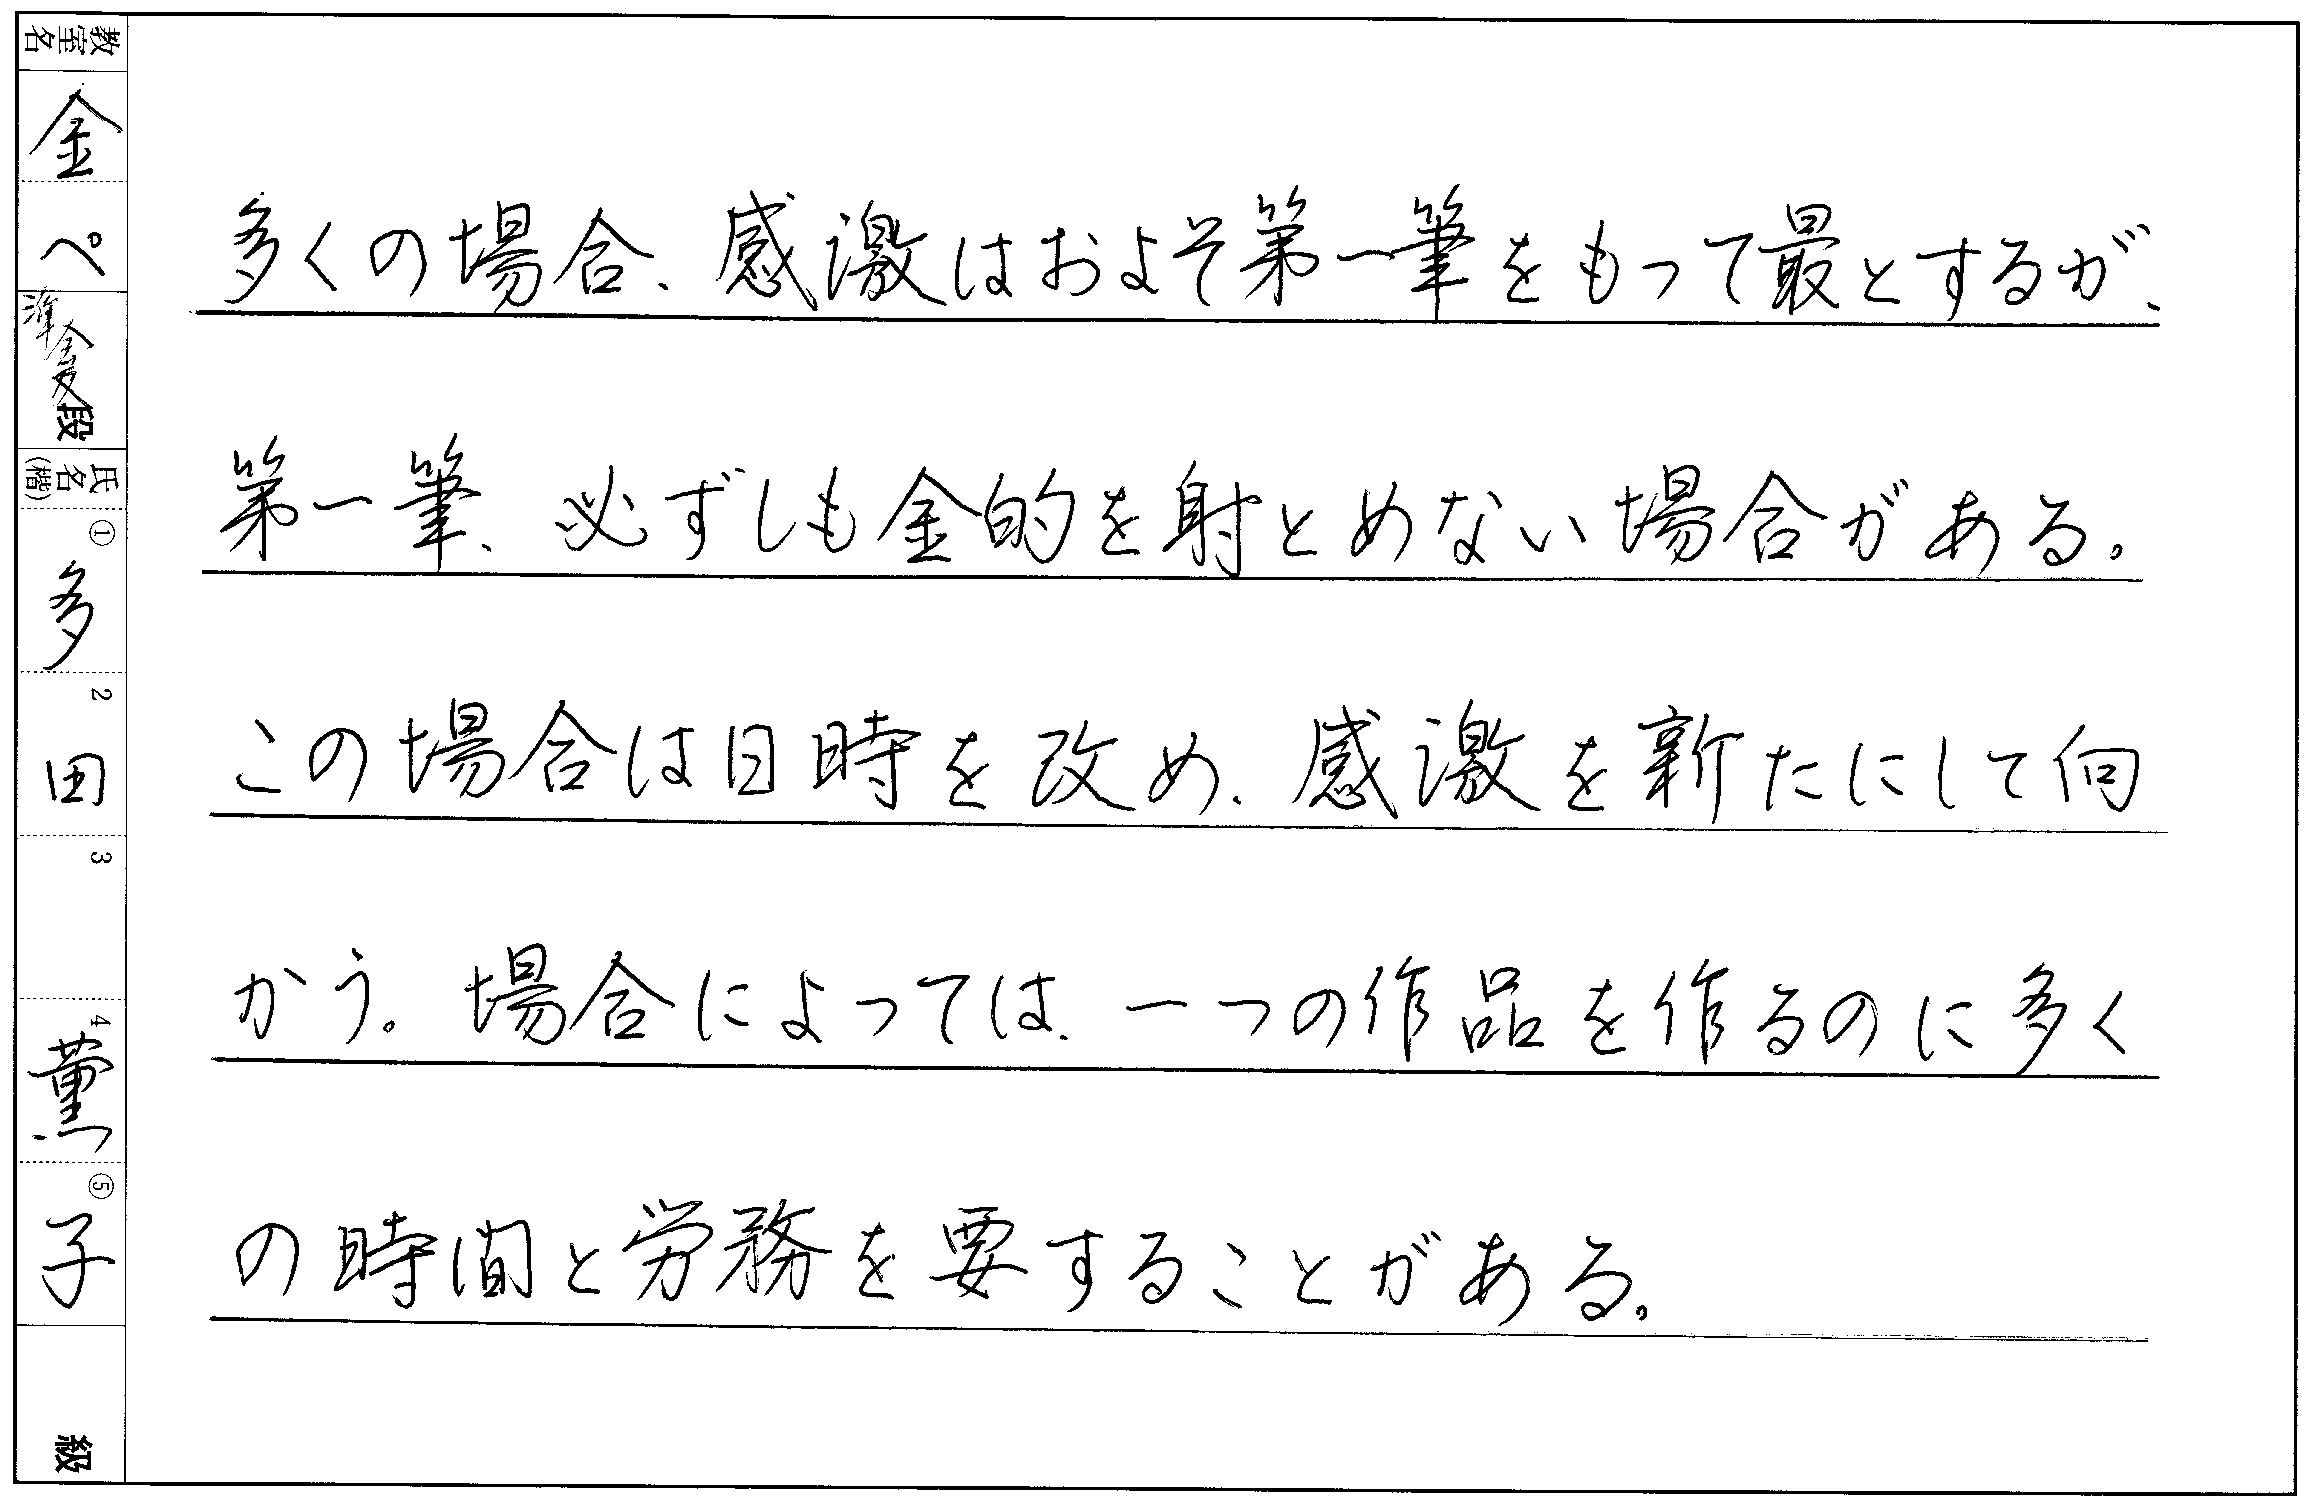 教室名
金
ペ
準
段
氏名(楷)
① 多
2 田
3
4 薫
⑤ 子
級
多くの場合、感激はおよそ第一筆をもって最とするが、
第一筆、必ずしも金的を射とめない場合がある。
この場合は日時を改め、感激を新たにして向
かう。場合によっては、一つの作品を作るのに多く
の時間と労務を要することがある。